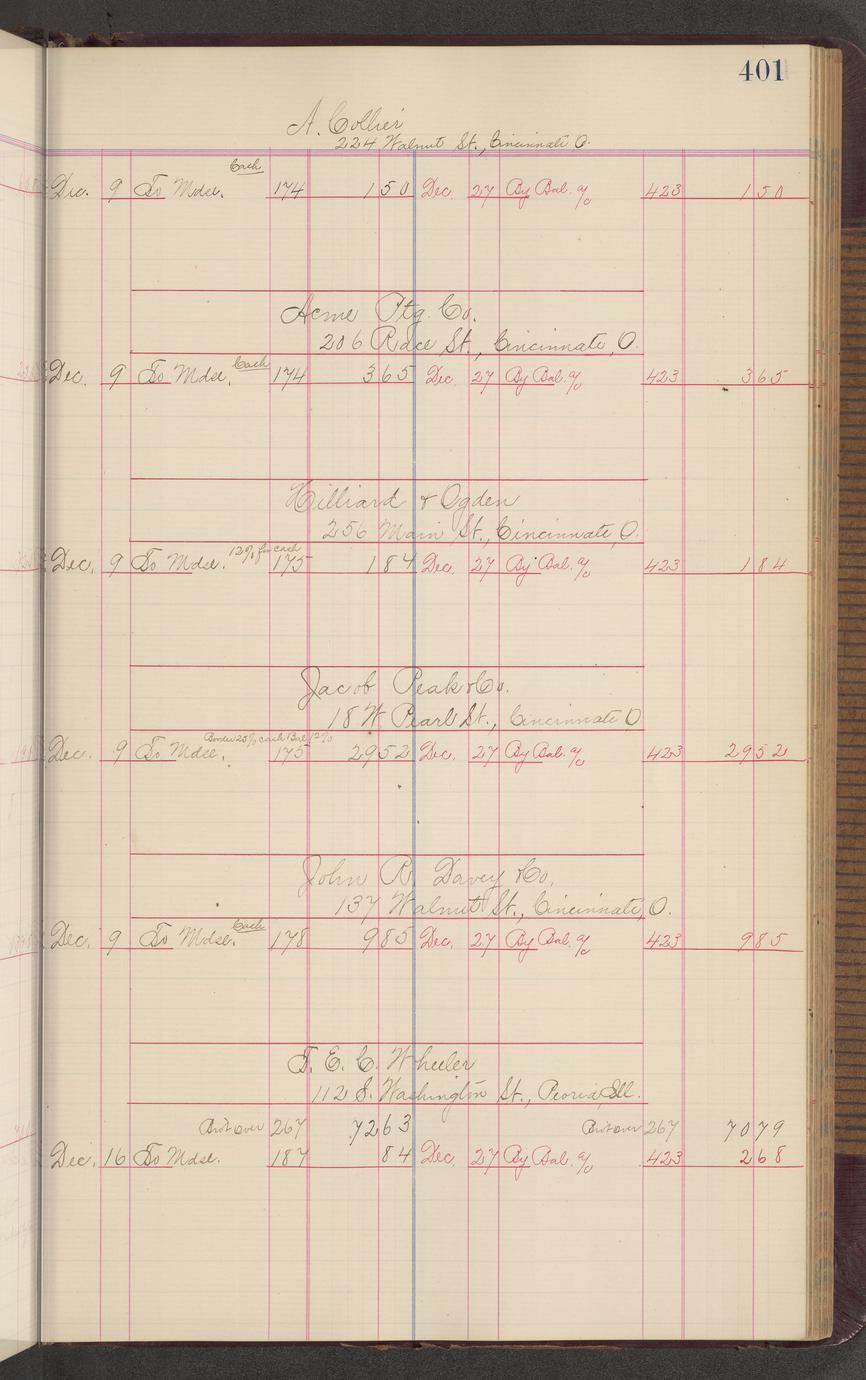 401
A. Collier
224 Walnut St., Cincinnati O.
Cash
Dec. 9 To Mdse. 174 150 Dec. 27 By Bal. a/c 423 150
Acme Ptg. Co.
206 Race St., Cincinnate, O.
Cash
Dec. 9 To Mdse. 174 365 Dec. 27 By Bal. a/c 423 365
Hilliard & Ogden
256 Main St., Cincinnate, O.
12% for cash
Dec. 9 To Mdse. 175 184 Dec. 27 By Bal. a/c 423 184
Jacob Peak & Co.
18 W Pearl St., Cincinnate O
25% cash Bal 12%
Dec. 9 To Mdse. 175 2952 Dec. 27 By Bal. a/c 423 2952
John R. Davey & Co.
137 Walnut St., Cincinnate, O.
Cash
Dec. 9 To Mdse. 178 985 Dec. 27 By Bal. a/c 423 985
T. E. C. Wheeler
112 S. Washington St., Peoria, Ill.
Brot over 267 7263 Brot over 267 7079
Dec. 16 To Mdse. 187 84 Dec. 27 By Bal. a/c 423 268